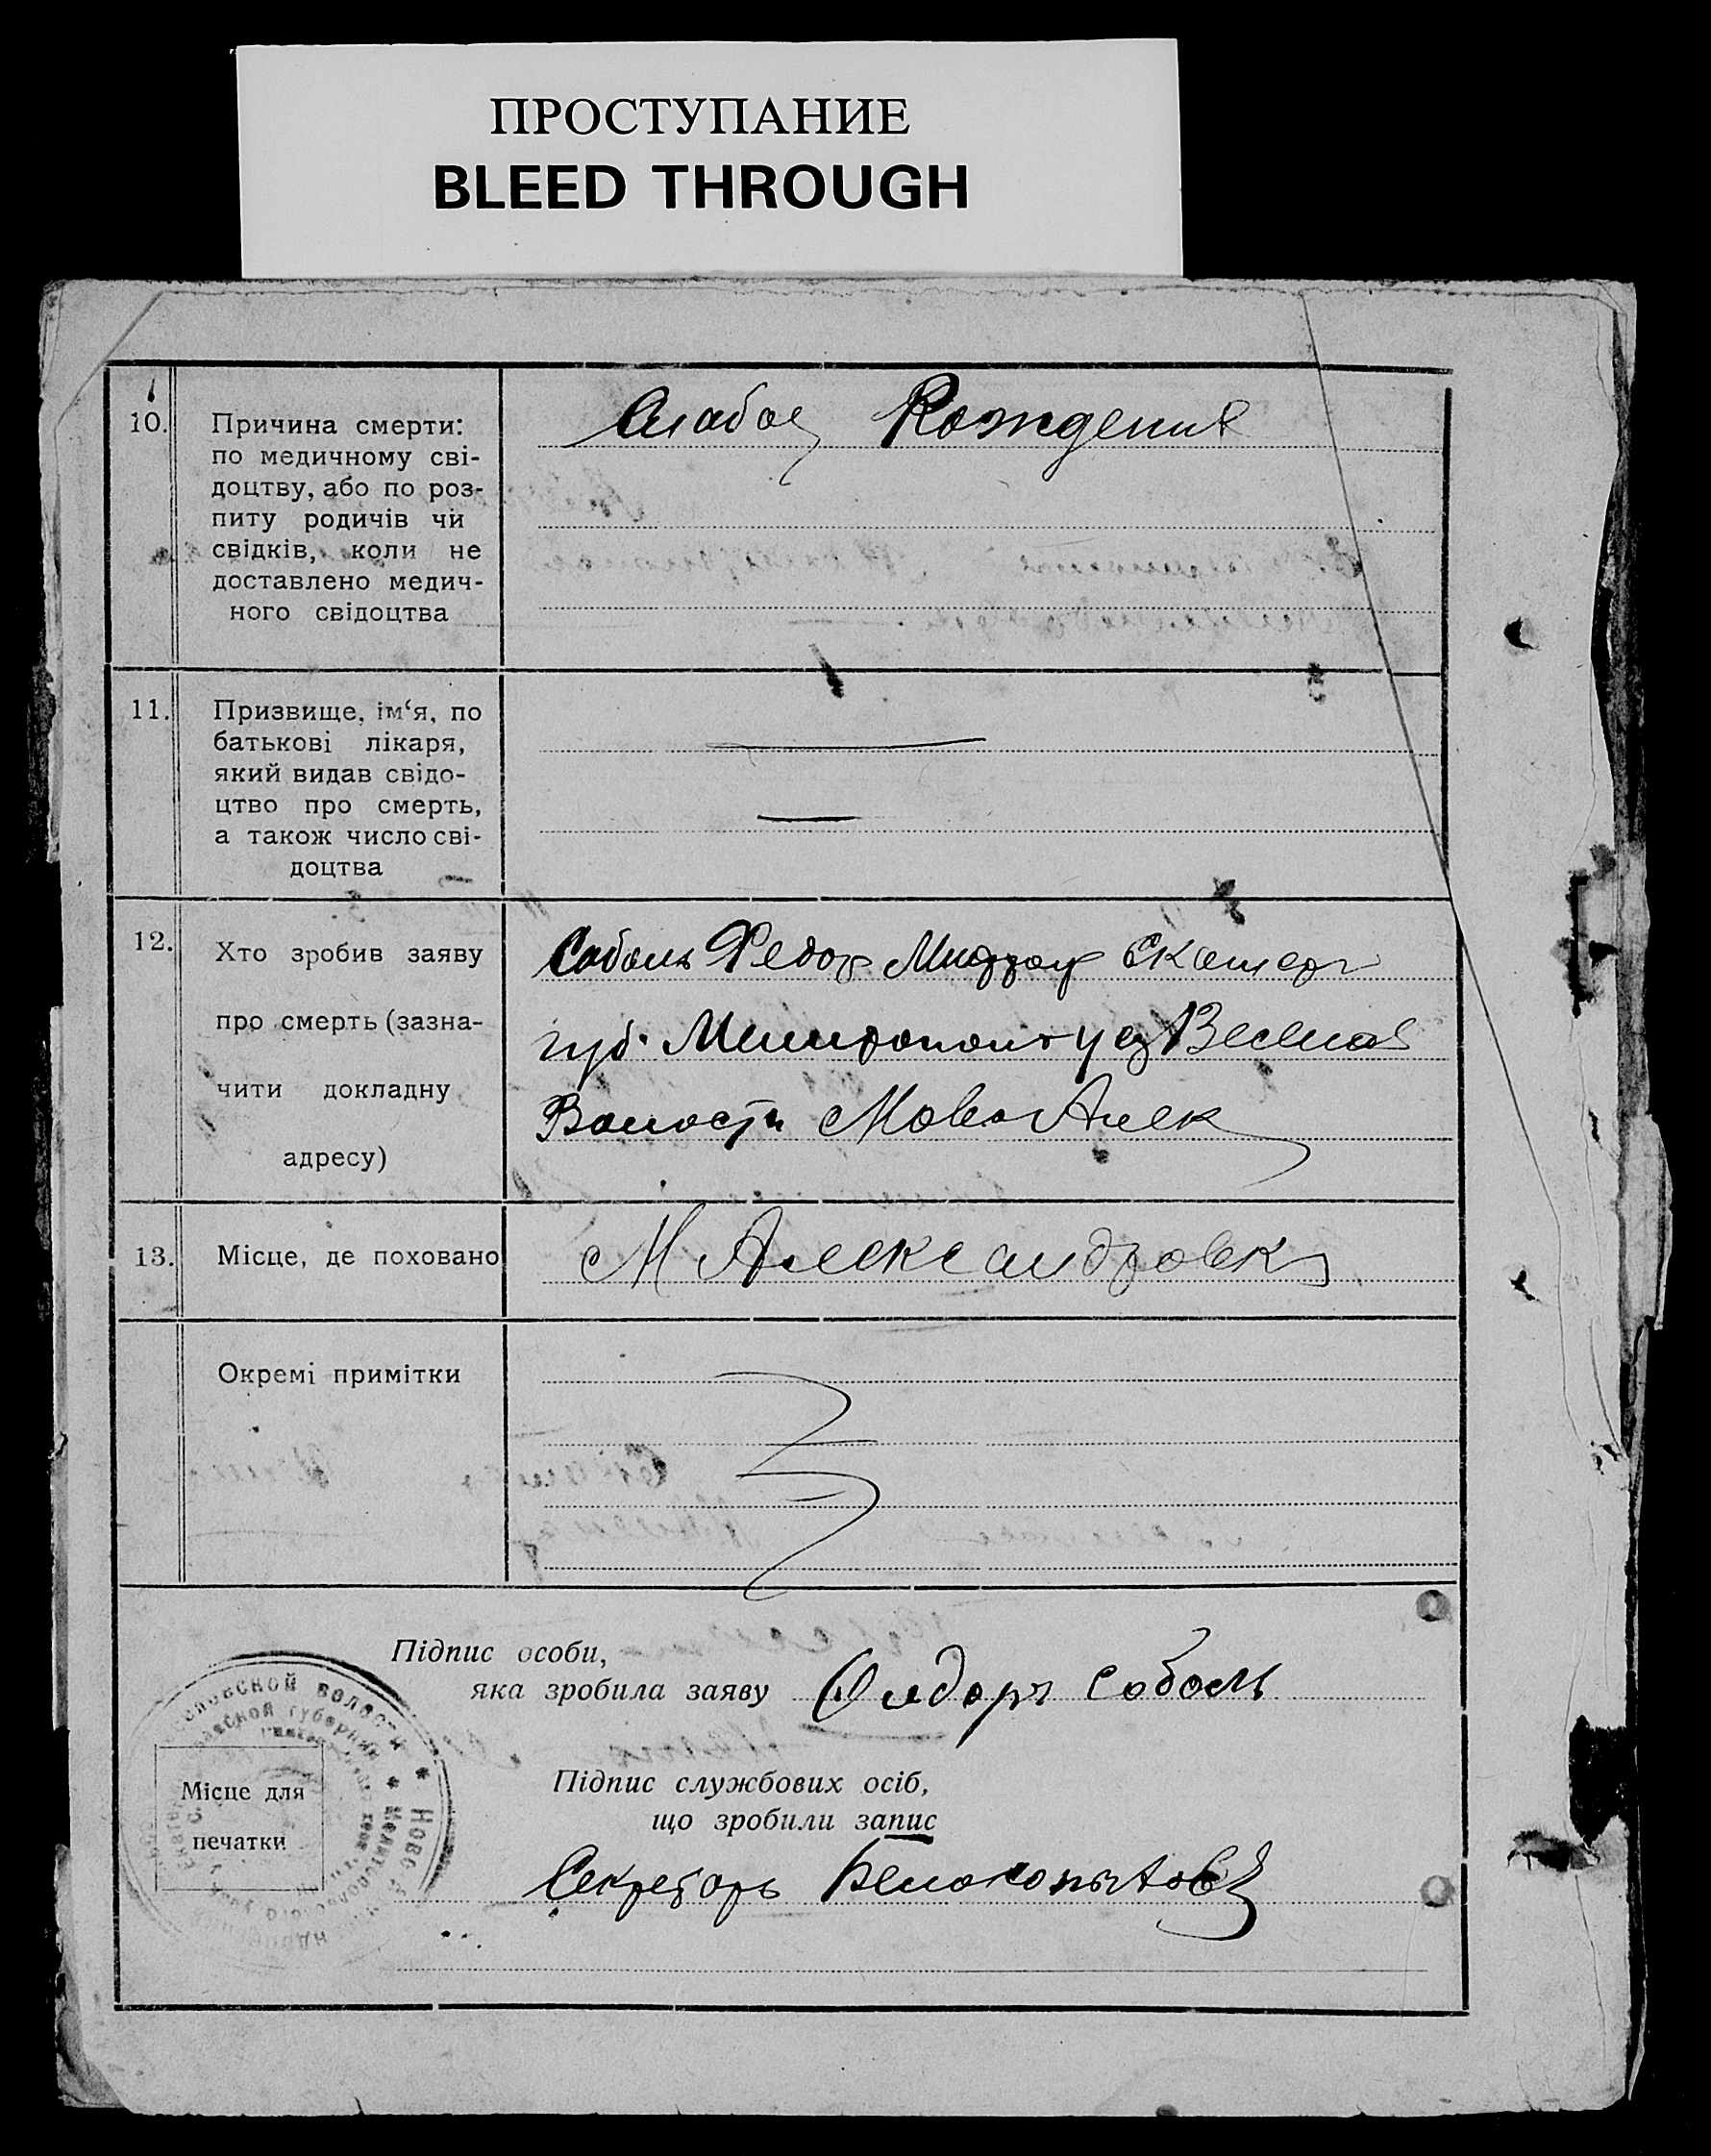 ПРОСТУПАНИЕ
BLEED THROUGH
10.
Причина смерти:
по медичному сві-
доцтву, або по роз-
питу родичів чи
свідків, коли не
доставлено медич-
ного свідоцтва
Слабое Рождения
11.
Призвище, ім‘я, по
батькові лікаря,
який видав свідо-
цтво про смерть,
а також число сві-
доцтва
12.
Хто зробив заяву
про смерть (зазна-
чити докладну
адресу)
Соболь Федор Екатер
губ. Мелитопол у Весела
Волости Ново Алек
13.
Місце, де поховано
Н Александровка
Окремі примітки
Підпис особи,
яка зробила заяву
Федоръ Соболь
Місце для
печатки
Підпис службових осіб,
що зробили запис
Секретарь Белокопытов
волости * Ново
губернии * Мелитопольского